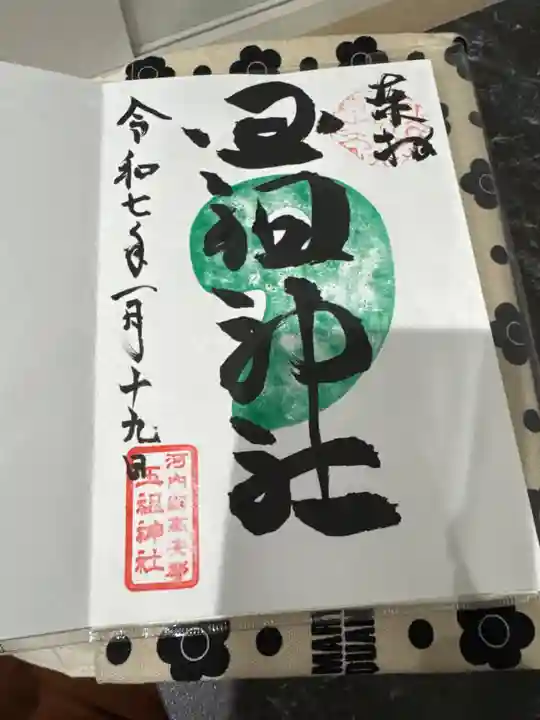 奉拝
玉祖神社
令和七年一月十九日
河内國高安郡
玉祖神社
MARY
QUANT